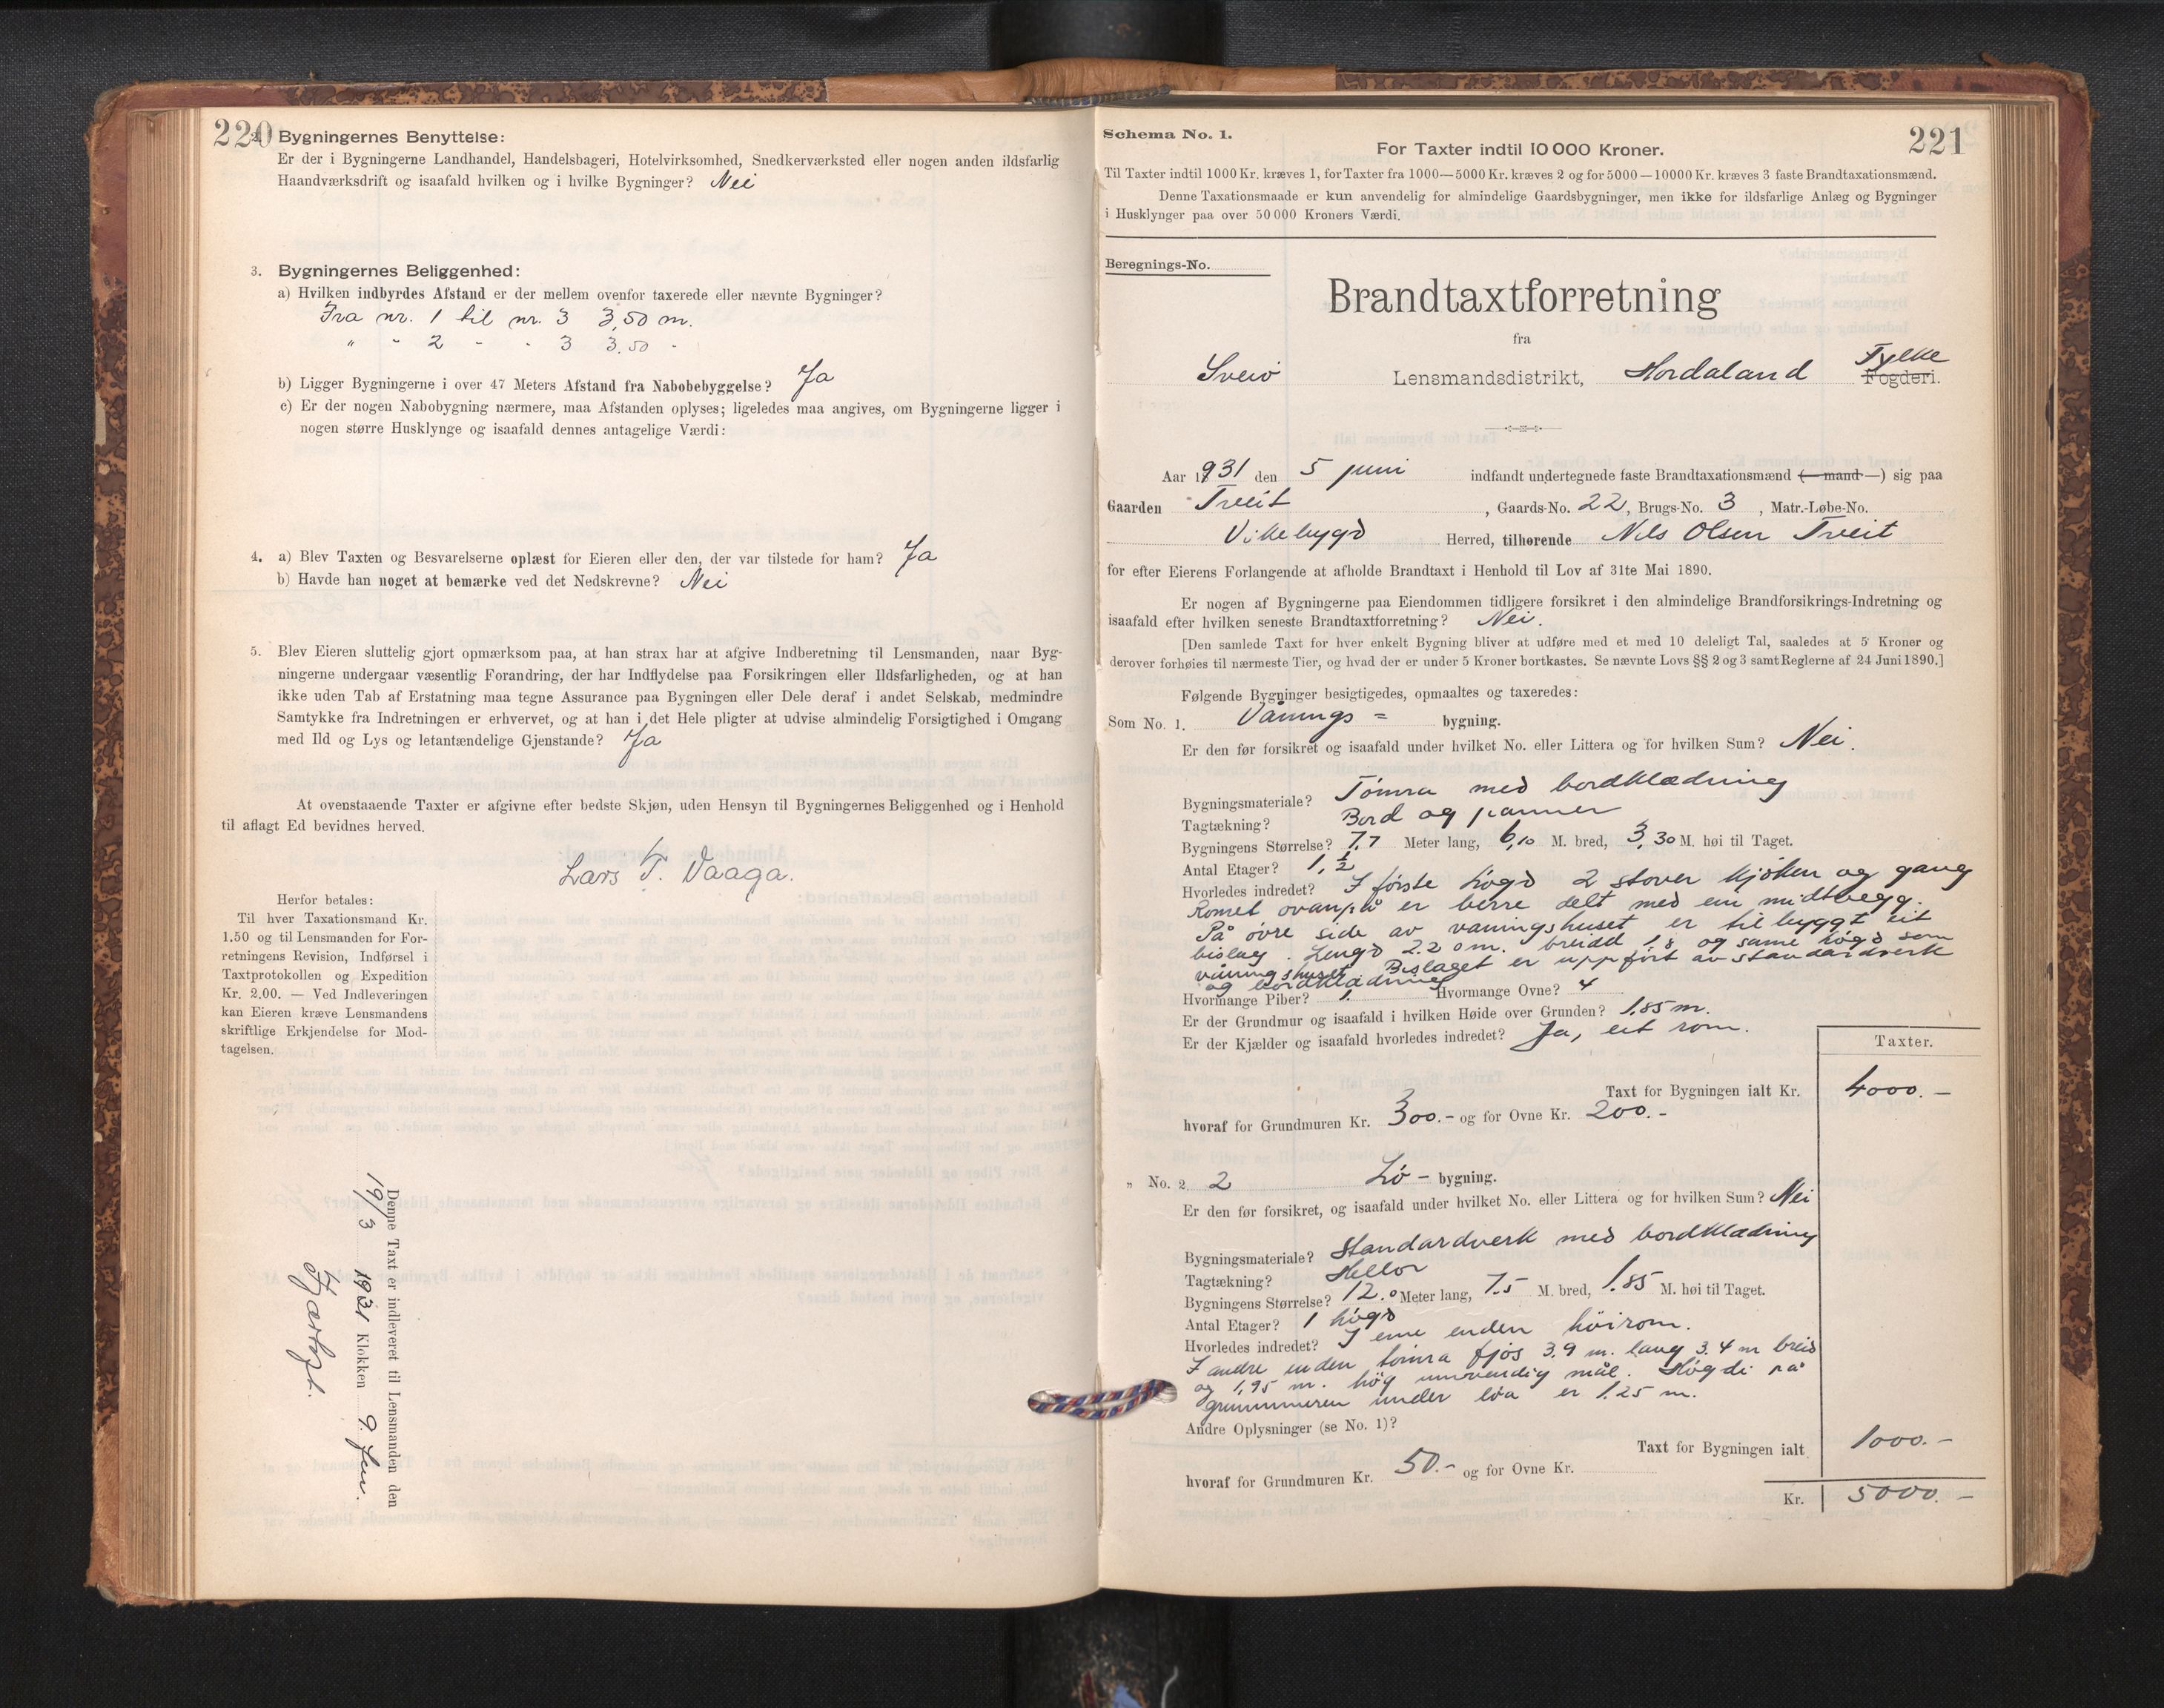 220
2. Bygningernes Benyttelse:
Er der i Bygningerne Landhandel, Handelsbageri, Hotelvirksomhed, Snedkerværksted eller nogen anden ildsfarlig
Haandværksdrift og isaafald hvilken og i hvilke Bygninger? Nei
3. Bygningernes Beliggenhed:
a) Hvilken indbyrdes Afstand er der mellem ovenfor taxerede eller nævnte Bygninger?
Fra nr. 1 til nr. 3 3,50 m.
" - 2 - - 3 3.50 -
b) Ligger Bygningerne i over 47 Meters Afstand fra Nabobebyggelse? Ja
c) Er der nogen Nabobygning nærmere, maa Afstanden oplyses; ligeledes maa angives, om Bygningerne ligger i
nogen større Husklynge og isaafald dennes antagelige Værdi:
4. a) Blev Taxten og Besvarelserne oplæst for Eieren eller den, der var tilstede for ham? Ja
b) Havde han noget at bemærke ved det Nedskrevne? Nei
5. Blev Eieren sluttelig gjort opmærksom paa, at han strax har at afgive Indberetning til Lensmanden, naar Byg-
ningerne undergaar væsentlig Forandring, der har Indflydelse paa Forsikringen eller Ildsfarligheden, og at han
ikke uden Tab af Erstatning maa tegne Assurance paa Bygningen eller Dele deraf i andet Selskab, medmindre
Samtykke fra Indretningen er erhvervet, og at han i det Hele pligter at udvise almindelig Forsigtighed i Omgang
med Ild og Lys og letantændelige Gjenstande? Ja
At ovenstaaende Taxter er afgivne efter bedste Skjøn, uden Hensyn til Bygningernes Beliggenhed og i Henhold
til aflagt Ed bevidnes herved.
Lars T. Vaaga.
Herfor betales:
Til hver Taxationsmand Kr.
1.50 og til Lensmanden for For-
retningens Revision, Indførsel i
Taxtprotokollen og Expedition
Kr. 2.00. — Ved Indleveringen
kan Eieren kræve Lensmandens
skriftlige Erkjendelse for Mod-
tagelsen.
Denne Taxt er indleveret til Lensmanden den
19/3 1931 Klokken 9. fm.
Schema No. 1.
221
For Taxter indtil 10 000 Kroner.
Til Taxter indtil 1000 Kr. kræves 1, for Taxter fra 1000—5000 Kr. kræves 2 og for 5000—10000 Kr. kræves 3 faste Brandtaxationsmænd.
Denne Taxationsmaade er kun anvendelig for almindelige Gaardsbygninger, men ikke for ildsfarlige Anlæg og Bygninger
i Husklynger paa over 50 000 Kroners Værdi.
Beregnings-No.
Brandtaxtforretning
fra
Sveio Lensmandsdistrikt, Hordaland Fylke Fogderi.
Aar 1931 den 5 juni indfandt undertegnede faste Brandtaxationsmænd (— mand —) sig paa
Gaarden Tveit, Gaards-No. 22, Brugs-No. 3, Matr.-Løbe-No.
Vikebygd Herred, tilhørende Nils Olsen Tveit
for efter Eierens Forlangende at afholde Brandtaxt i Henhold til Lov af 31te Mai 1890.
Er nogen af Bygningerne paa Eiendommen tidligere forsikret i den almindelige Brandforsikrings-Indretning og
isaafald efter hvilken seneste Brandtaxtforretning? Nei.
[Den samlede Taxt for hver enkelt Bygning bliver at udføre med et med 10 deleligt Tal, saaledes at 5 Kroner og
derover forhøies til nærmeste Tier, og hvad der er under 5 Kroner bortkastes. Se nævnte Lovs §§ 2 og 3 samt Reglerne af 24 Juni 1890.]
Følgende Bygninger besigtigedes, opmaaltes og taxeredes:
Som No. 1. Vånings = bygning.
Er den før forsikret og isaafald under hvilket No. eller Littera og for hvilken Sum? Nei.
Bygningsmateriale? Tømra med bordklædning
Tagtækning? Bord og panner
Bygningens Størrelse? 7,7 Meter lang, 6,10 M. bred, 3,30 M. høi til Taget.
Antal Etager? 1,½
Hvorledes indredet? I første høgd 2 stover kjøken og gang
Romet ovanpå er berre delt med ein midtvegg.
På øvre side av våningshuset er tilbyggt eit
bislag. Lengd 2.20 m. breidd 1,8 og same høgd som
våningshuset. Bislaget er uppført av standardverk
og bordklædning
Hvormange Piber? 1. Hvormange Ovne? 4
Er der Grundmur og isaafald i hvilken Høide over Grunden? 1,85 m.
Er der Kjælder og isaafald hvorledes indredet? Ja, eit rom.
Taxter.
Taxt for Bygningen ialt Kr. 4000.—
hvoraf for Grundmuren Kr. 300.- og for Ovne Kr. 200.-
„ No. 2 2 Lø - bygning.
Er den før forsikret, og isaafald under hvilket No. eller Littera og for hvilken Sum? Nei
Bygningsmateriale? Standardverk med bordklædning
Tagtækning? Hellor
Bygningens Størrelse? 12.0 Meter lang, 7.5 M. bred, 1.85 M. høi til Taget.
Antal Etager? 1 høgd
Hvorledes indredet? I eine enden høirom.
I andre enden tømra fjøs 3.9 m. lang 3.4 m breid
og 1,95 m. høg innvendig mål. Høgdi på
grunnmuren under løa er 1.25 m.
Andre Oplysninger (se No. 1)?
Taxt for Bygningen ialt 1000.-
hvoraf for Grundmuren Kr. 50.- og for Ovne Kr.
Kr. 5000.-